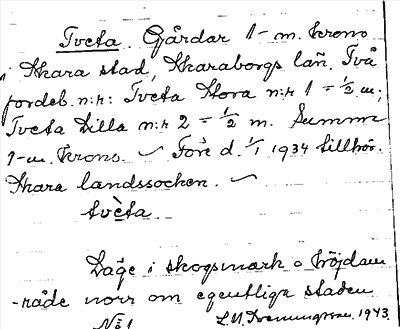 Tveta. Gårdar 1-m. krono
i Skara stad, Skaraborgs län. Två
jordeb. n:r: Tveta Stora n:r 1 = 1/2 m.;
Tveta Lilla n:r 2 = 1/2 m. Summa
1-m. krono. ✓ Före d. 1/1 1934 tillhör.
Skara landssocken. ✓
tvèta
Läge i skogsmark o höjdom
-råde norr om egentliga staden
1943